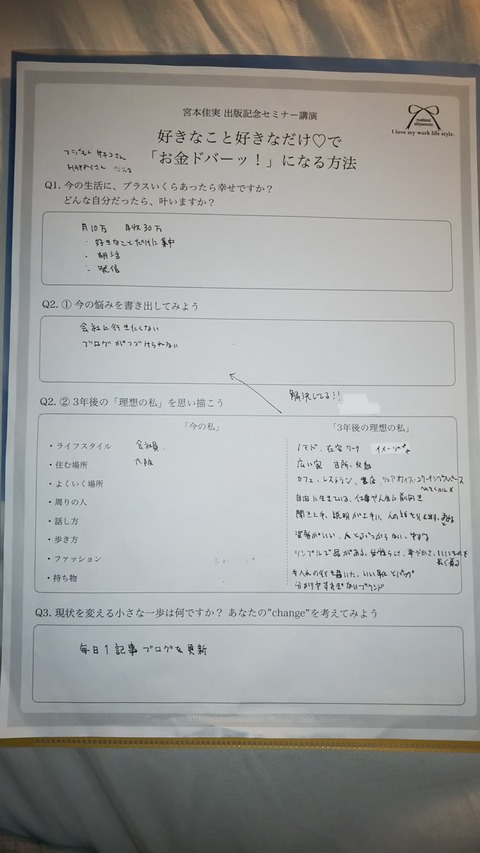 宮本佳実 出版記念セミナー講演
yoshimi miyamoto
I love my work life style.
好きなこと好きなだけ♡で
「お金ドバーッ！」になる方法
HAPPYさん
Q1. 今の生活に、プラスいくらあったら幸せですか？
どんな自分だったら、叶いますか？
月10万 月収30万
・好きなことだけに集中
・発信
Q2. ① 今の悩みを書き出してみよう
会社に行きたくない
ブログがつづけられない
Q2. ② 3年後の「理想の私」を思い描こう
解決してる!!
「今の私」
「3年後の理想の私」
・ライフスタイル 会社員 ノマド、在宅ワーク
・住む場所 大阪 広い家
・よくいく場所 カフェ・レストラン
・周りの人 自由に生きている、仕事や人生に前向き
・話し方 聞き上手、説明が上手い、人の話を
・歩き方 姿勢がいい、人とぶつからない
・ファッション シンプルで品がある
長く着る
・持ち物
Q3. 現状を変える小さな一歩は何ですか？ あなたの"change"を考えてみよう
毎日1記事ブログを更新